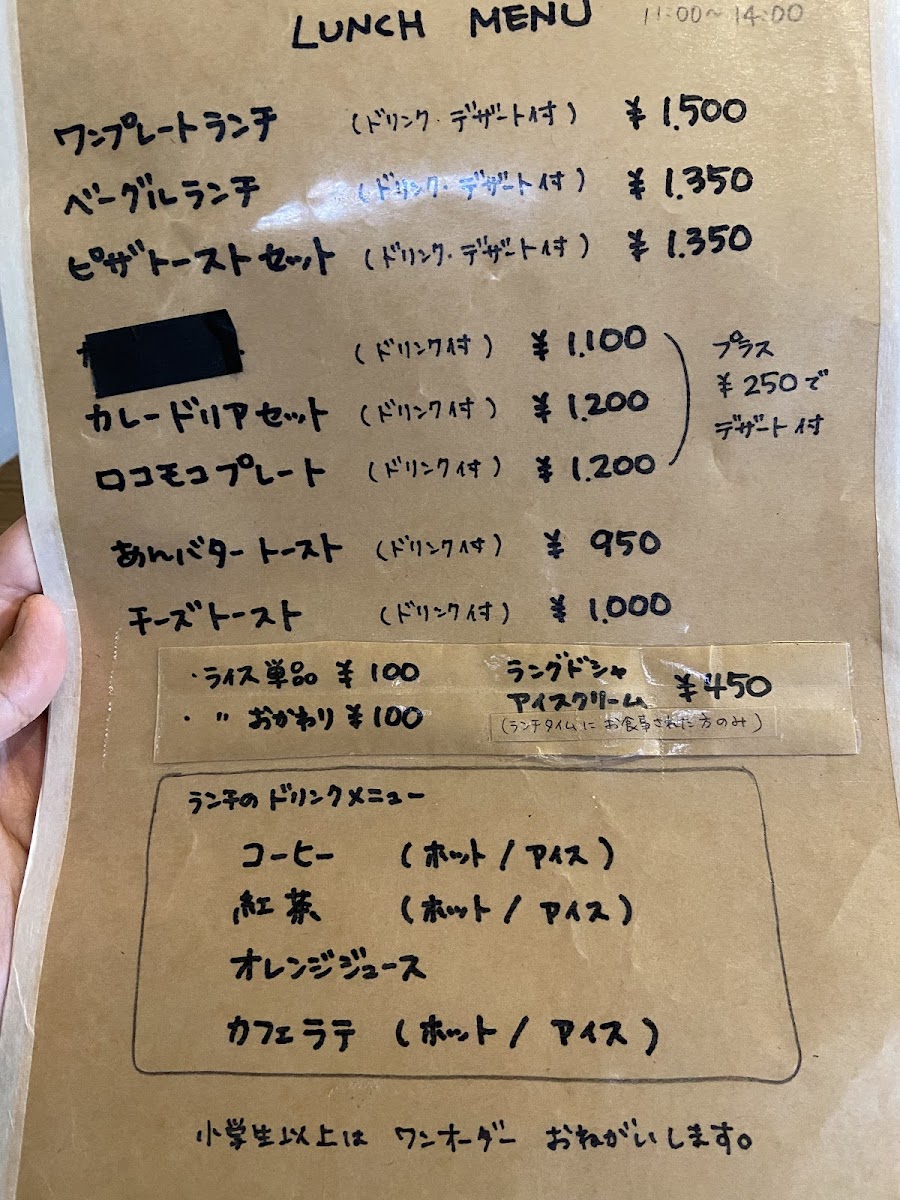 LUNCH MENU 11:00~14:00
ワンプレートランチ (ドリンク・デザート付) ¥1.500
ベーグルランチ (ドリンク・デザート付) ¥1.350
ピザトーストセット (ドリンク・デザート付) ¥1.350
(ドリンク付) ¥1.100
カレードリアセット (ドリンク付) ¥1.200
ロコモコプレート (ドリンク付) ¥1.200
プラス
¥250で
デザート付
あんバタートースト (ドリンク付) ¥950
チーズトースト (ドリンク付) ¥1.000
・ライス単品 ¥100
・ 〃 おかわり ¥100
ラングドシャ
アイスクリーム ¥450
(ランチタイムにお食事された方のみ)
ランチのドリンクメニュー
コーヒー (ホット/アイス)
紅茶 (ホット/アイス)
オレンジジュース
カフェラテ (ホット/アイス)
小学生以上は ワンオーダー おねがいします。